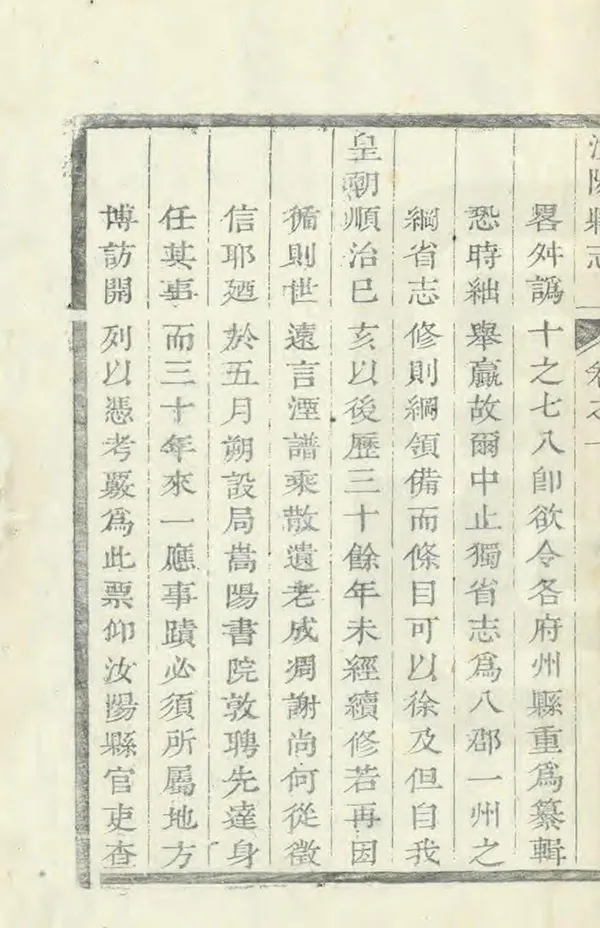 汝陽縣志 卷之一
畧舛譌十之七八卽欲令各府州縣重爲纂輯
恐時絀舉贏故爾中止獨省志爲八郡一州之
綱省志修則綱領備而條目可以徐及但自我
皇朝順治巳亥以後歷三十餘年未經續修若再因
循則世遠言湮譜乘散遺老成凋謝尚何從徵
信耶廼於五月朔設局嵩陽書院敦聘先達身
任其事而三十年來一應事蹟必須所屬地方
博訪開列以憑考覈爲此票仰汝陽縣官吏查